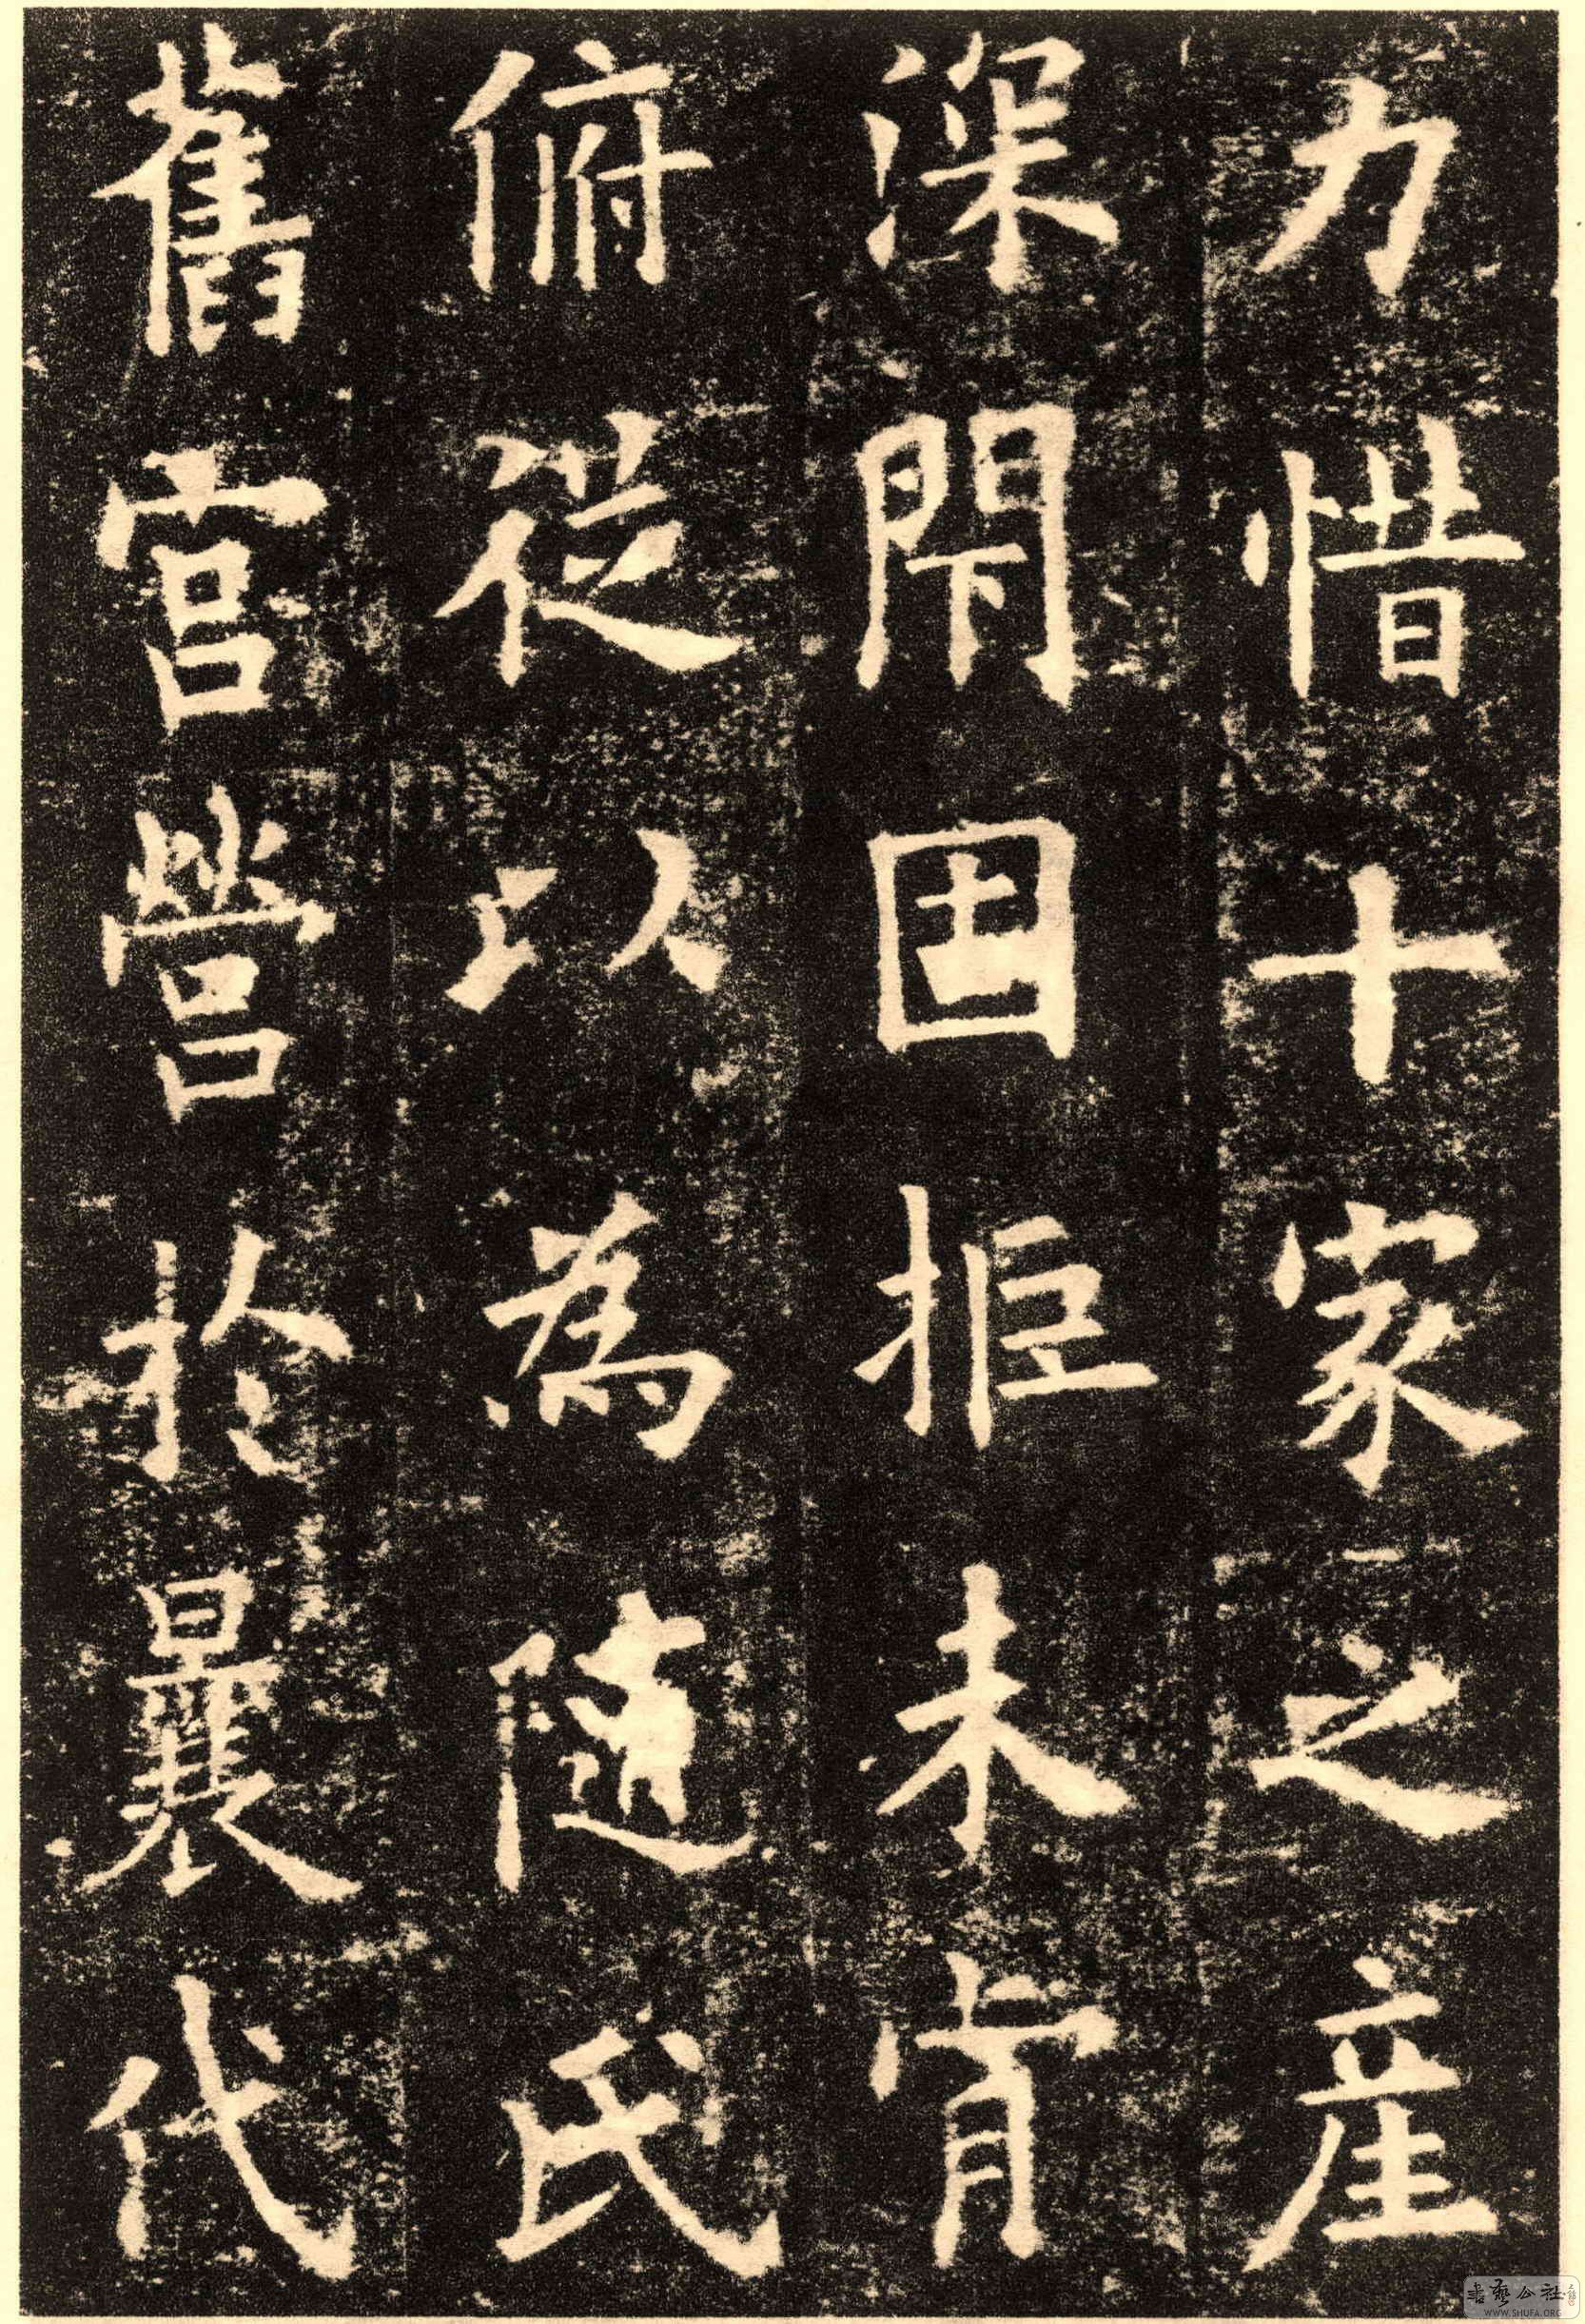 力惜十家之產
深閇固拒未肯
俯従以為隨氏
舊宮營扵曩代
書藝公社
WWW.SHUFA.ORG